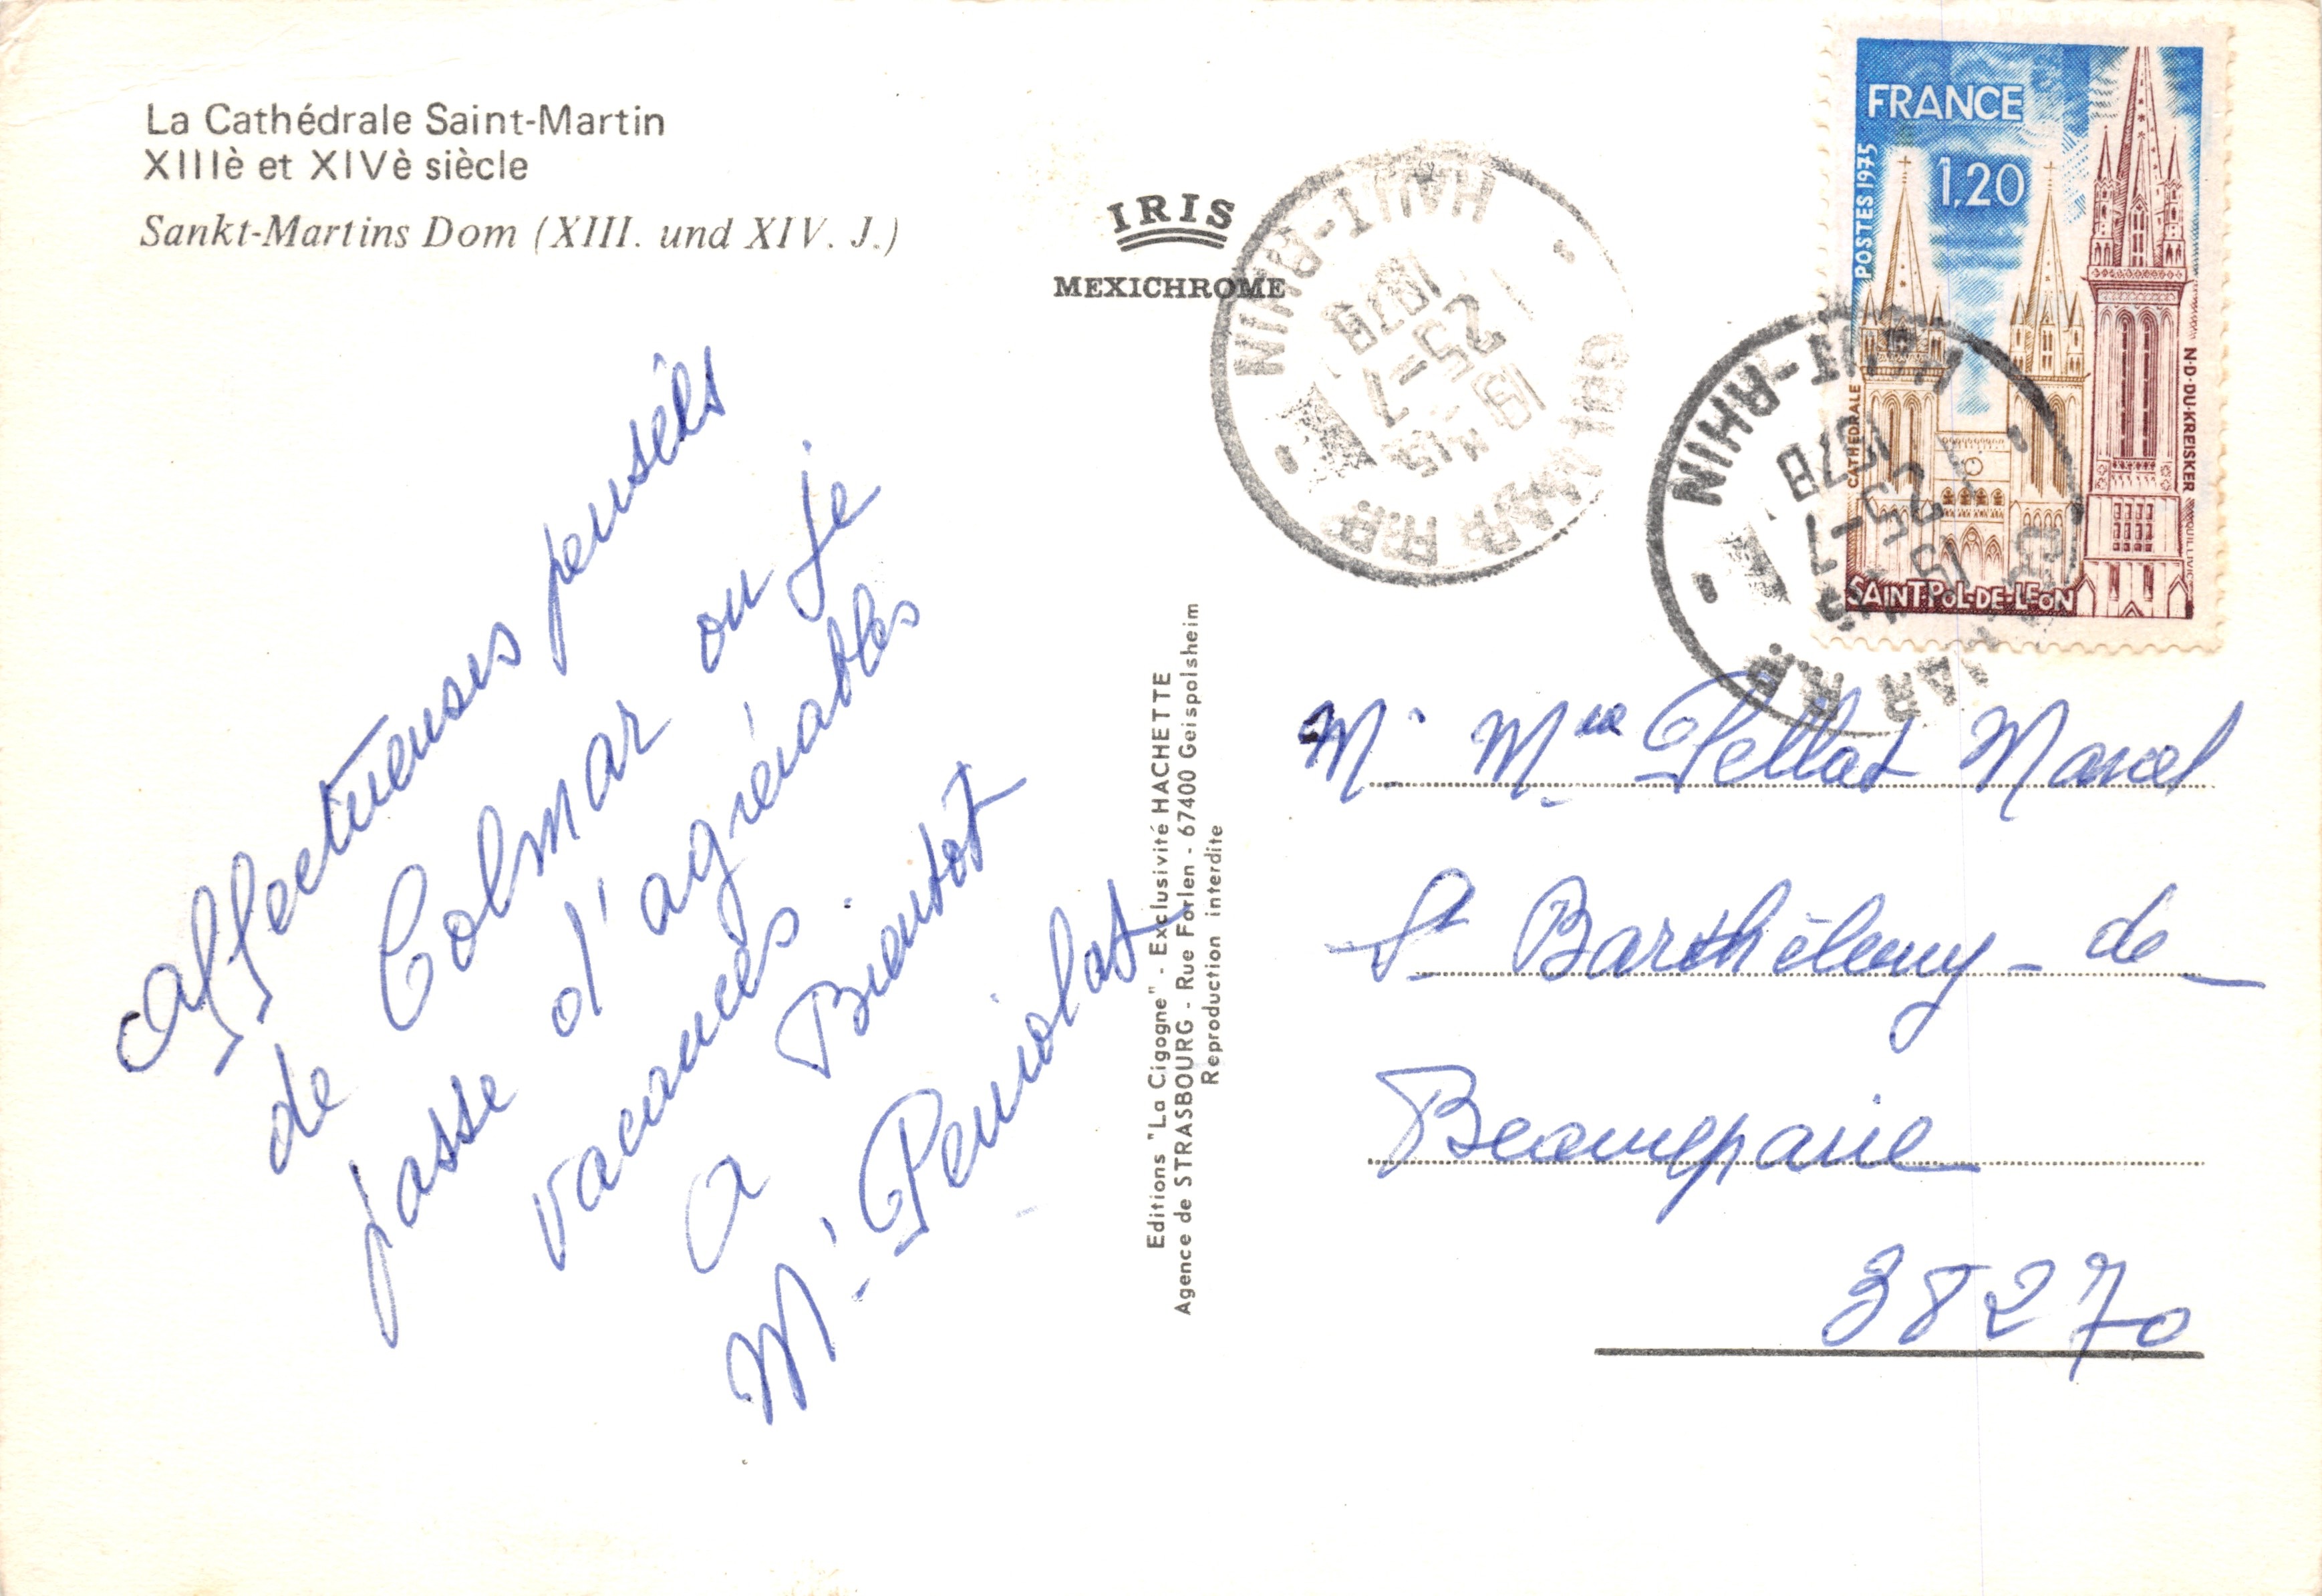 La Cathédrale Saint-Martin
XIIIè et XIVè siècle
Sankt-Martins Dom (XIII. und XIV. J.)
IRIS
MEXICHROME
affectueuses pensées
de Colmar ou je
passe d'agréables
vacances.
a Bientot
Mr
Editions "La Cigogne" - Exclusivité HACHETTE
Agence de STRASBOURG - Rue Forlen - 67400 Geispolsheim
Reproduction interdite
HAUT-RHIN
COLMAR R.P.
19 H15
25-7
1978
FRANCE
1,20
POSTES 1975
CATHÉDRALE
N-D-DU-KREISKER
SAINT-POL-DE-LEON
HAUT-RHIN
COLMAR R.P.
25-7
1978
Mr Mme Pellat Marcel
St Barthélemy-de-
Beaurepaire
38270